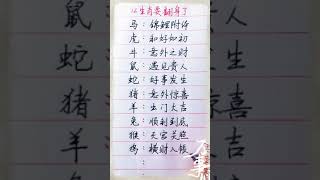 生肖要翻身了
马：锦鲤附体
虎：和好如初
牛：意外之财
鼠：遇见贵人
蛇：好事发生
猪：意外惊喜
羊：出门大吉
兔：顺利到底
猴：天官关照
鸡：横财入账